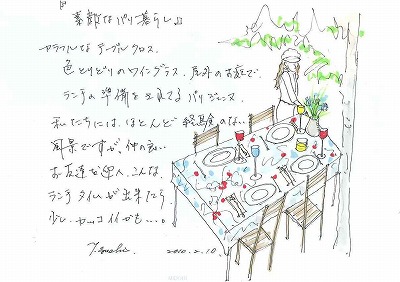 『素敵なパリ暮らし』
カラフルなテーブルクロス。
色とりどりのワイングラス。屋外のお庭で、
ランチの準備をされてるパリジェンヌ。
私たちには、ほとんど経験のない
風景ですが、仲の良い
お友達が集い、こんな
ランチタイムが出来たら
少し、カッコイイかも・・・。
2010.2.10.